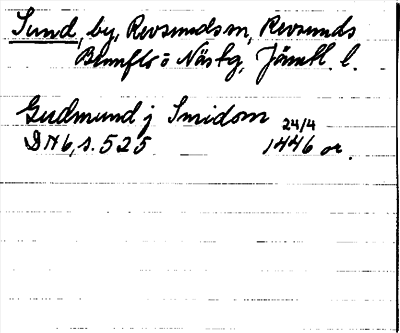 Sund, by, Revsunds sn, Revsunds
Brunflo o Näs tg, Jämtl. l.
Gudmund j Snidom 24/4
DN 6, s. 525 1446 or.